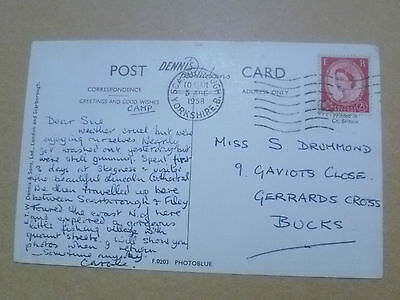 POST
CARD
DENNIS
Productions
CORRESPONDENCE
ADDRESS ONLY
GREETINGS AND GOOD WISHES
CAMP.
Dear Sue
Weather cruel but were
enjoying ourselves. Nearly
got washed out yesterday but
were still grinning. Spent first
2 days at Skegness & visited
the beautiful Lincoln Cathedral
We then travelled up here
between Scarborough & Filey
Toured the coast N. of here
and explored a gorgeous
little fishing village. Will
show you
photos when I return
Sometime anyday.
E.T.W. Dennis & Sons Ltd., London and Scarborough.
F.0203 PHOTOBLUE
SCARBOROUGH
1958
YORKSHIRE.B.
E R
Printed in
Gt. Britain
MISS S DRUMMOND
9. GAVIOTS CLOSE.
GERRARDS CROSS
BUCKS